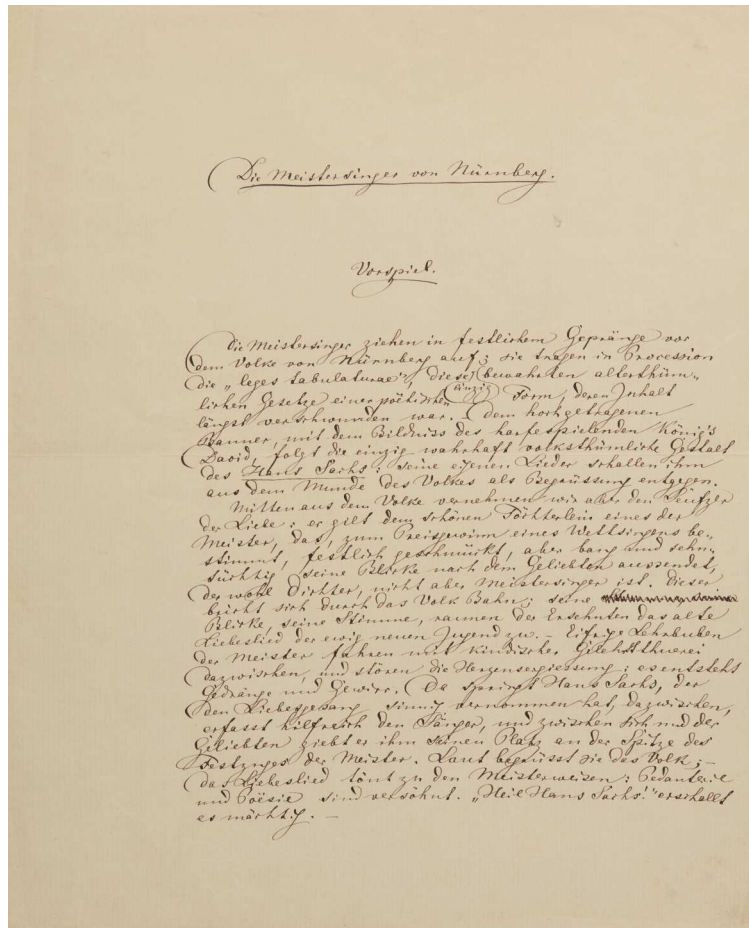 Die Meistersinger von Nürnberg.
Vorspiel.
Die Meistersinger ziehen in festlichem Gepränge vor
dem Volke von Nürnberg auf; sie tragen in Procession
die „leges tabulaturae”, diese bewahrten alterthüm-
lichen Gesetze einer poëtischen Form, deren Inhalt
längst verschwunden war. dem hochgetragenen
Banner, mit dem Bildniss des harfespielenden König's
David, folgt die einzig wahrhaft volksthümliche Gestalt
des Hans Sachs: seine eigenen Lieder schallen ihm
aus dem Munde des Volkes als Begrüssung entgegen.
Mitten aus dem Volke vernehmen wir aber den Seufzer
der Liebe: er gilt dem schönen Töchterlein eines der
Meister, das, zum Preisgewinn eines Wettsingens be-
stimmt, festlich geschmückt, aber bang und sehn-
süchtig seine Blicke nach dem Geliebten aussendet,
der wohl Dichter, nicht aber Meistersinger ist. Dieser
bricht sich durch das Volk Bahn; seine
Blicke, seine Stimme, raunen der Ersehnten das alte
Liebeslied der ewig neuen Jugend zu. – Eifrige Lehrbuben
der Meister fahren mit kindischer Gelehrtthuerei
dazwischen, und stören die Herzensergiessung; es entsteht
Gedränge und Gewirr. Da springt Hans Sachs, der
den Liebesgesang sinnig vernommen hat, dazwischen,
erfasst hilfreich den Sänger, und zwischen sich und der
Geliebten giebt er ihm seinen Platz an der Spitze des
Festzuges der Meister. Laut begrüsst sie das Volk; –
das Liebeslied tönt zu den Meisterweisen: Pedanterie
und Poësie sind versöhnt. „Heil Hans Sachs!” erschallt
es mächtig. –